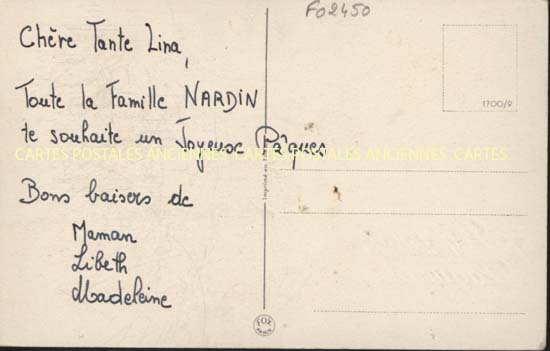 F02450
Chère Tante Lina,
Toute la Famille NARDIN
te souhaite un Joyeuse Pâques
Bons baisers de
Maman
Libeth
Madeleine
1700/9
CARTES POSTALES ANCIENNES CARTES POSTALES ANCIENNES CARTES
Imprimé en
FOX
PARIS